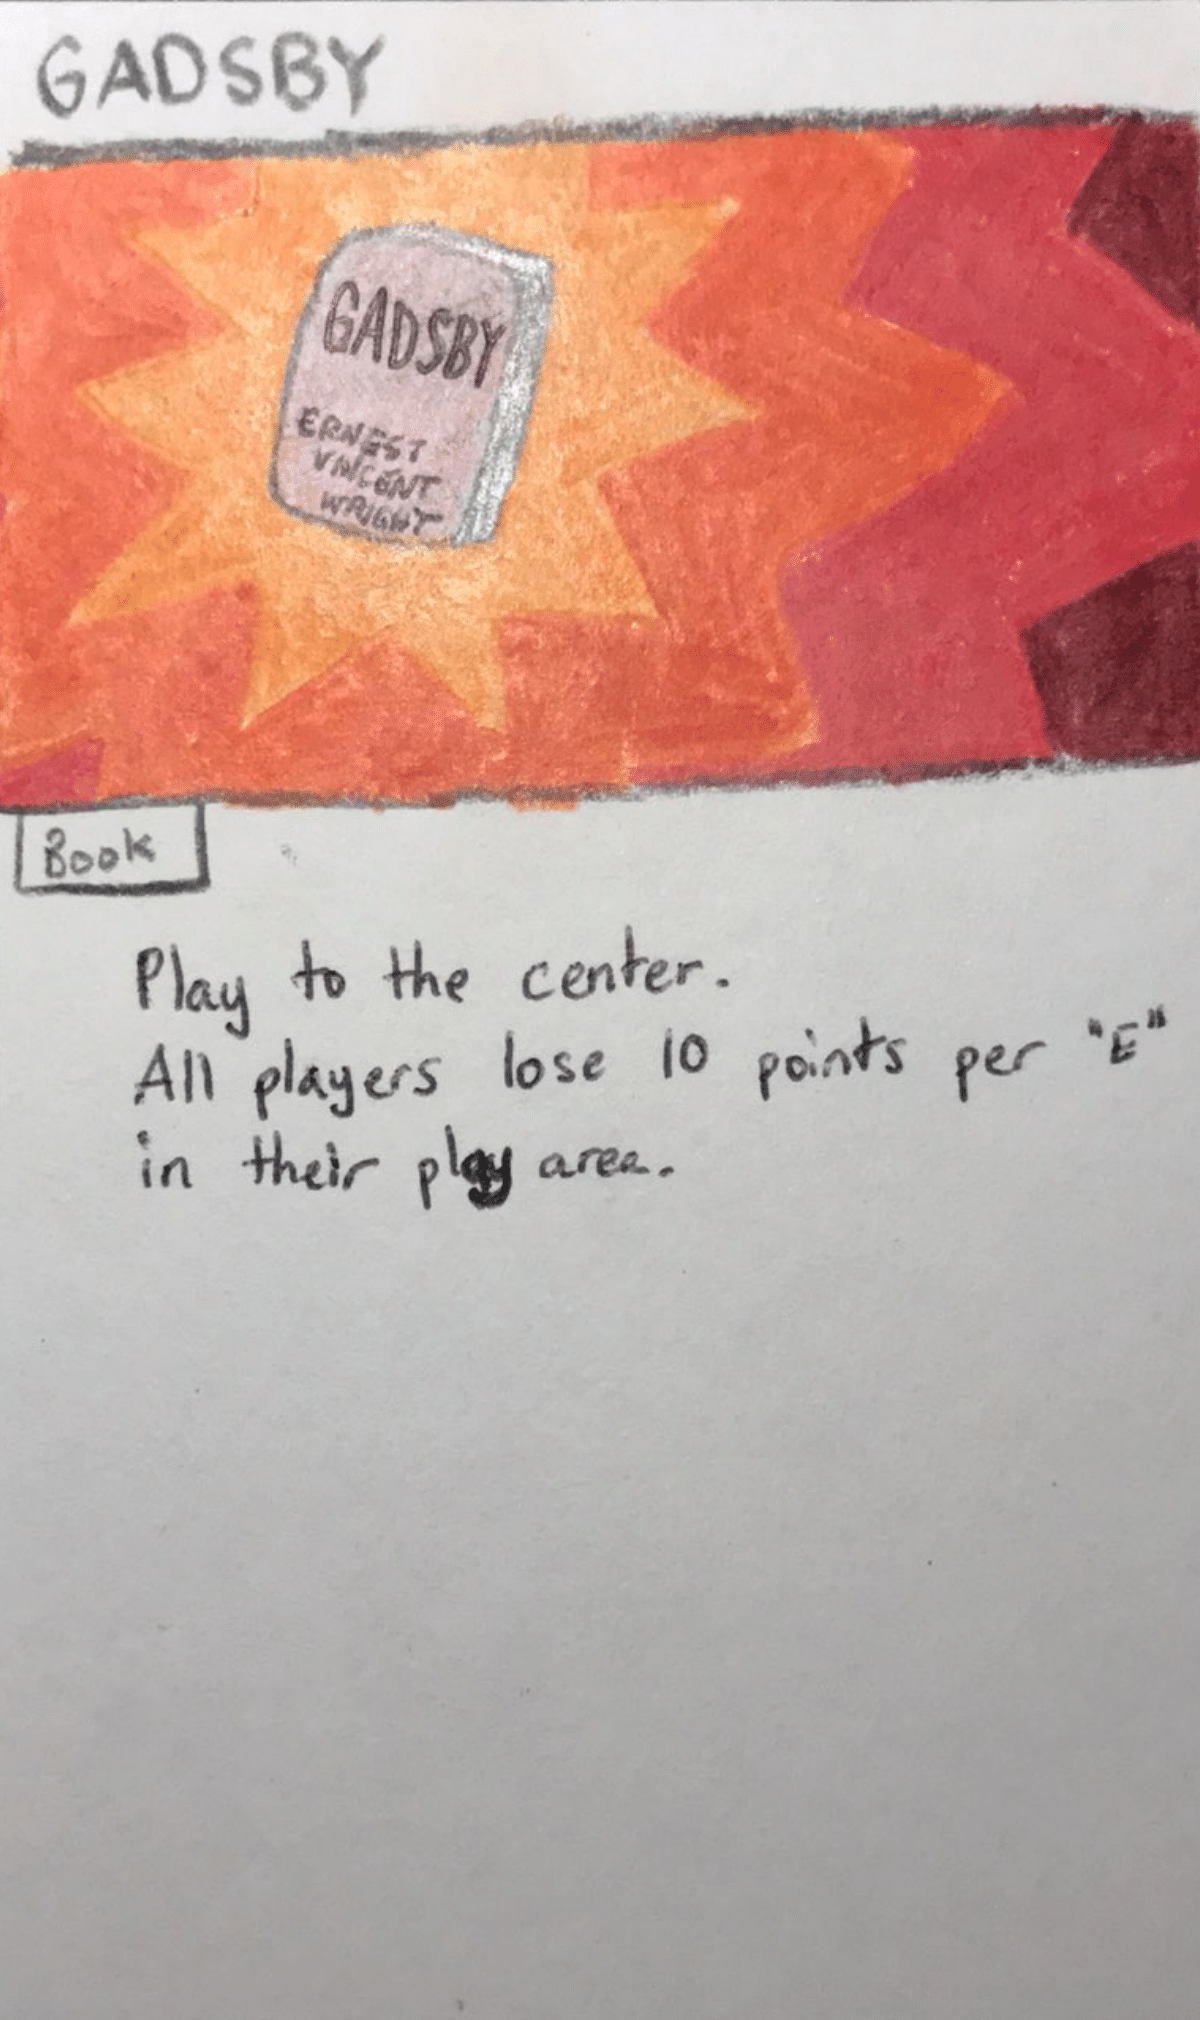 GADSBY
GADSBY
ERNEST
VINCENT
WRIGHT
Book
Play to the center.
All players lose 10 points per "E"
in their play area.